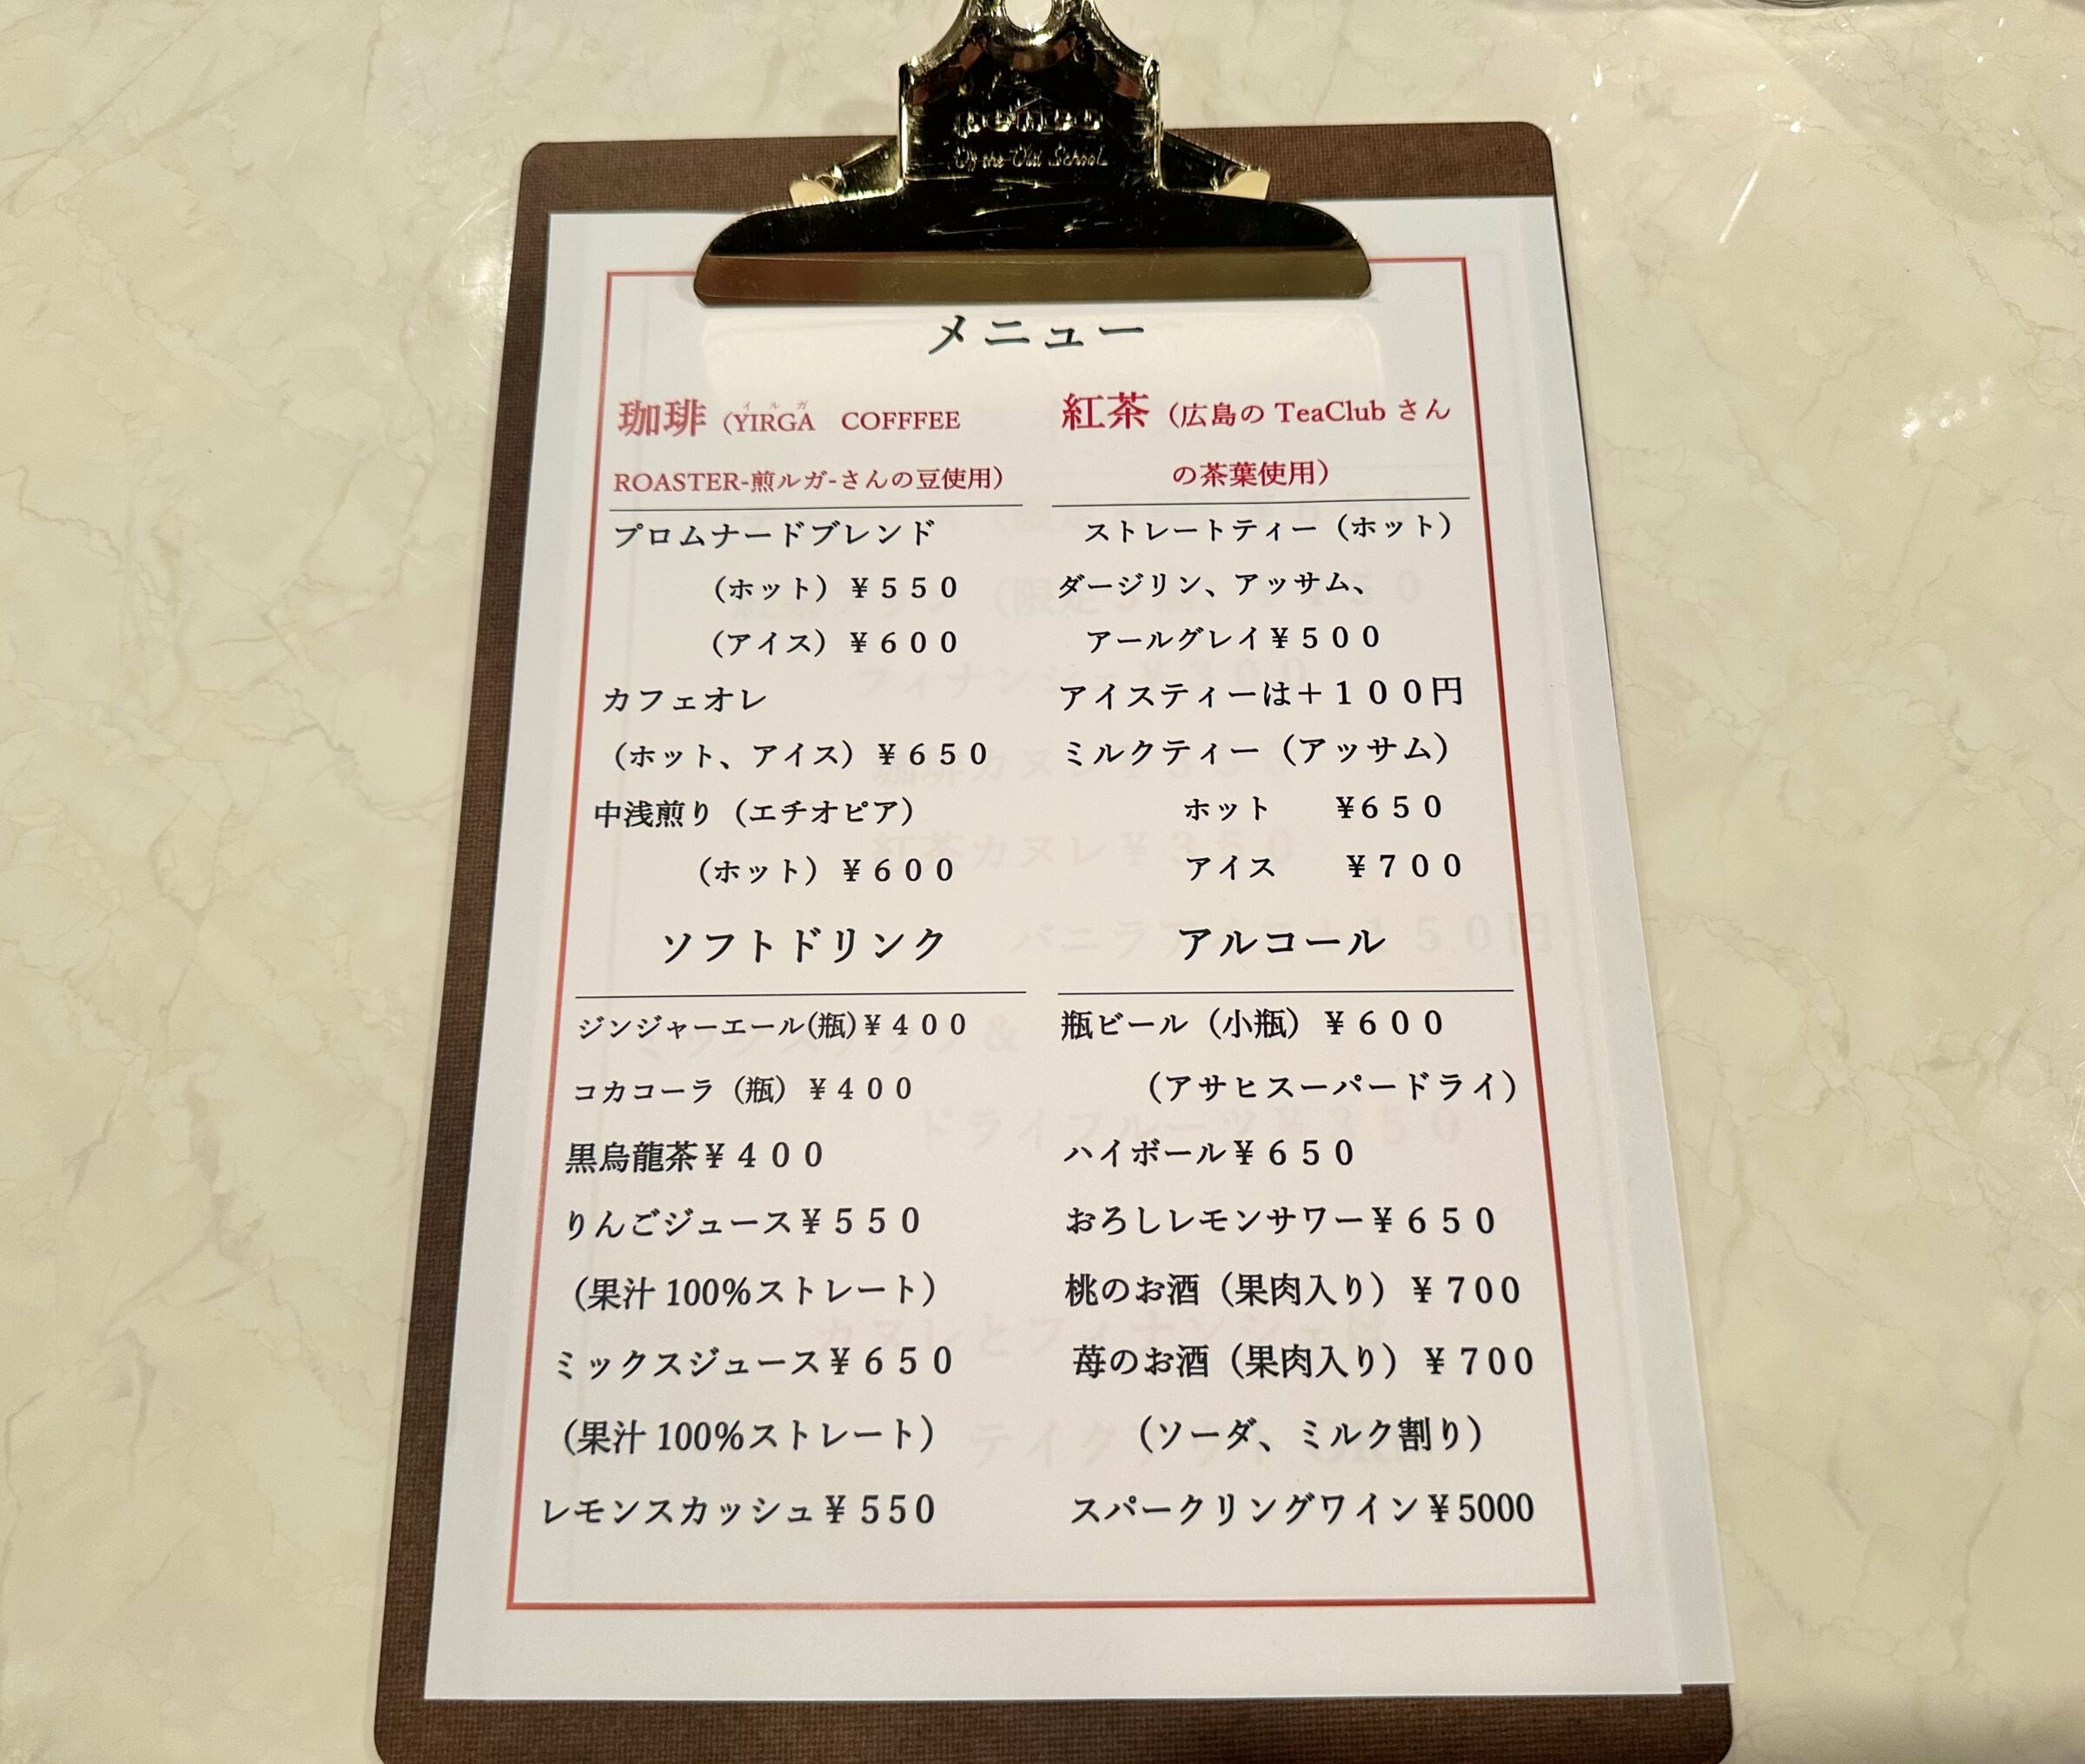 Of the Old School
メニュー
珈琲（YIRGA COFFFEE
イルガ
ROASTER-煎ルガ-さんの豆使用）
プロムナードブレンド
（ホット）￥５５０
（アイス）￥６００
カフェオレ
（ホット、アイス）￥６５０
中浅煎り（エチオピア）
（ホット）￥６００
紅茶（広島の TeaClub さん
の茶葉使用）
ストレートティー（ホット）
ダージリン、アッサム、
アールグレイ￥５００
アイスティーは＋１００円
ミルクティー（アッサム）
ホット ¥６５０
アイス ￥７００
ソフトドリンク
ジンジャーエール(瓶)￥４００
コカコーラ（瓶）￥４００
黒烏龍茶￥４００
りんごジュース￥５５０
（果汁 100％ストレート）
ミックスジュース￥６５０
（果汁 100％ストレート）
レモンスカッシュ￥550
アルコール
瓶ビール（小瓶）￥６００
（アサヒスーパードライ）
ハイボール￥６５０
おろしレモンサワー￥６５０
桃のお酒（果肉入り）￥７００
苺のお酒（果肉入り）￥７００
（ソーダ、ミルク割り）
スパークリングワイン￥5000